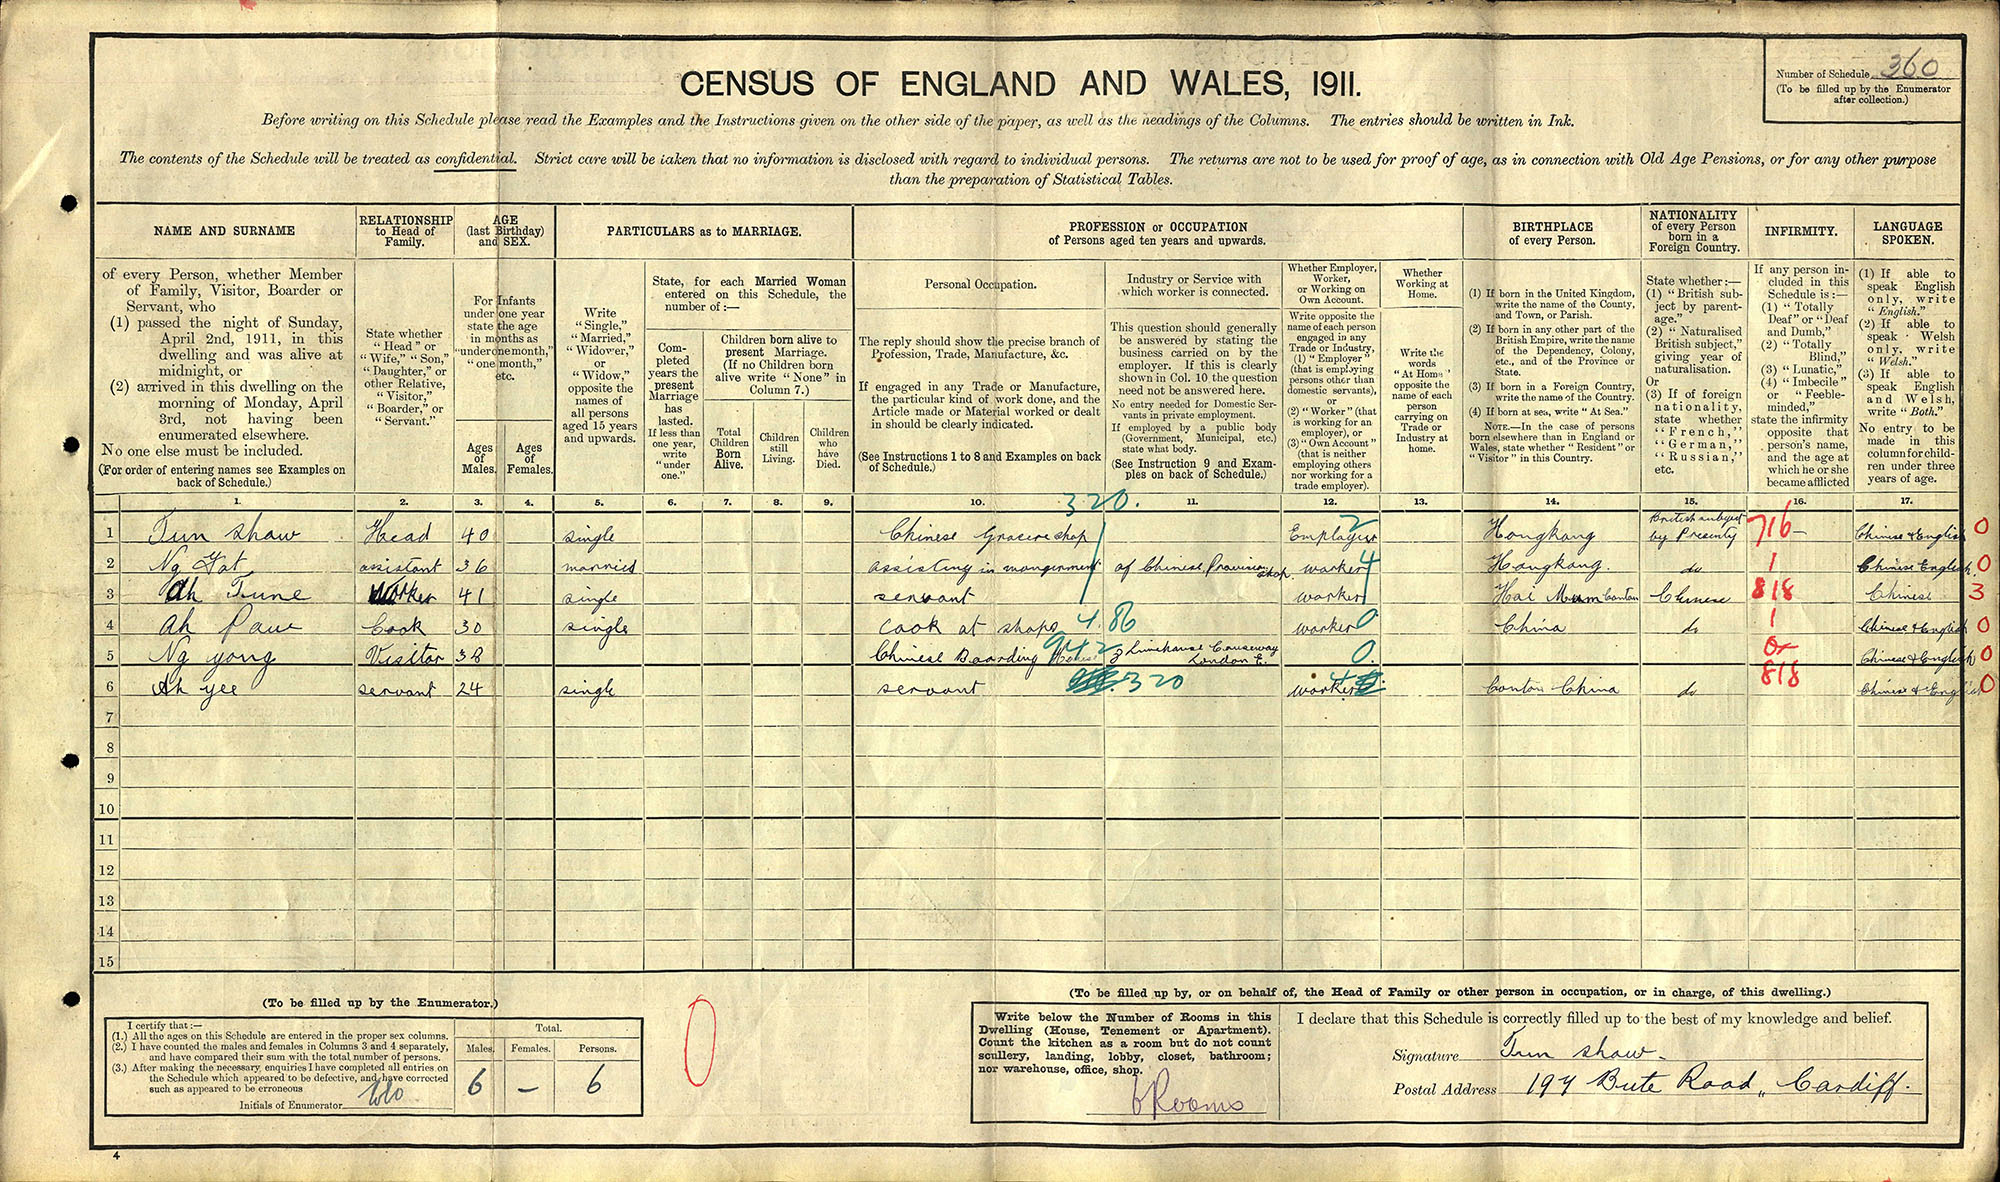 Number of Schedule 360
(To be filled up by the Enumerator
after collection.)
CENSUS OF ENGLAND AND WALES, 1911.
Before writing on this Schedule please read the Examples and the Instructions given on the other side of the paper, as well as the headings of the Columns. The entries should be written in Ink.
The contents of the Schedule will be treated as confidential. Strict care will be taken that no information is disclosed with regard to individual persons. The returns are not to be used for proof of age, as in connection with Old Age Pensions, or for any other purpose
than the preparation of Statistical Tables.
NAME AND SURNAME
of every Person, whether Member
of Family, Visitor, Boarder or
Servant, who
(1) passed the night of Sunday,
April 2nd, 1911, in this
dwelling and was alive at
midnight, or
(2) arrived in this dwelling on the
morning of Monday, April
3rd, not having been
enumerated elsewhere.
No one else must be included.
(For order of entering names see Examples on
back of Schedule.)
RELATIONSHIP
to Head of
Family.
State whether
"Head" or
"Wife," "Son,"
"Daughter," or
other Relative,
"Visitor,"
"Boarder," or
"Servant."
AGE
(last Birthday)
and SEX.
For Infants
under one year
state the age
in months as
"under one month,"
"one month,"
etc.
Ages
of
Males.
Ages
of
Females.
PARTICULARS as to MARRIAGE.
Write
"Single,"
"Married,"
"Widower,"
or
"Widow,"
opposite the
names of
all persons
aged 15 years
and upwards.
State, for each Married Woman
entered on this Schedule, the
number of:—
Com-
pleted
years the
present
Marriage
has
lasted.
If less than
one year,
write
"under
one."
Children born alive to
present Marriage.
(If no Children born
alive write "None" in
Column 7.)
Total
Children
Born
Alive.
Children
still
Living.
Children
who
have
Died.
PROFESSION or OCCUPATION
of Persons aged ten years and upwards.
Personal Occupation.
The reply should show the precise branch of
Profession, Trade, Manufacture, &c.
If engaged in any Trade or Manufacture,
the particular kind of work done, and the
Article made or Material worked or dealt
in should be clearly indicated.
(See Instructions 1 to 8 and Examples on back
of Schedule.)
Industry or Service with
which worker is connected.
This question should generally
be answered by stating the
business carried on by the
employer. If this is clearly
shown in Col. 10 the question
need not be answered here.
No entry needed for Domestic Ser-
vants in private employment.
If employed by a public body
(Government, Municipal, etc.)
state what body.
(See Instruction 9 and Exam-
ples on back of Schedule.)
Whether Employer,
Worker,
or Working on
Own Account.
Write opposite the
name of each person
engaged in any
Trade or Industry,
(1) "Employer"
(that is employing
persons other than
domestic servants),
or
(2) "Worker" (that
is working for an
employer), or
(3) "Own Account"
(that is neither
employing others
nor working for a
trade employer).
Whether
Working at
Home.
Write the
words
"At Home"
opposite the
name of each
person
carrying on
Trade or
Industry at
home.
BIRTHPLACE
of every Person.
(1) If born in the United Kingdom,
write the name of the County,
and Town, or Parish.
(2) If born in any other part of the
British Empire, write the name
of the Dependency, Colony,
etc., and of the Province or
State.
(3) If born in a Foreign Country,
write the name of the Country.
(4) If born at sea, write "At Sea."
NOTE.—In the case of persons
born elsewhere than in England or
Wales, state whether "Resident" or
"Visitor" in this Country.
NATIONALITY
of every Person
born in a
Foreign Country.
State whether:—
(1) "British sub-
ject by parent-
age."
(2) "Naturalised
British subject,"
giving year of
naturalisation.
Or
(3) If of foreign
nationality,
state whether
"French,"
"German,"
"Russian,"
etc.
INFIRMITY.
If any person in-
cluded in this
Schedule is:—
(1) "Totally
Deaf" or "Deaf
and Dumb,"
(2) "Totally
Blind,"
(3) "Lunatic,"
(4) "Imbecile"
or "Feeble-
minded,"
state the infirmity
opposite that
person's name,
and the age at
which he or she
became afflicted
LANGUAGE
SPOKEN.
(1) If able to
speak English
only, write
"English."
(2) If able to
speak Welsh
only, write
"Welsh."
(3) If able to
speak English
and Welsh,
write "Both."
No entry to be
made in this
column for chil-
dren under three
years of age.
1. 2. 3. 4. 5. 6. 7. 8. 9. 10. 11. 12. 13. 14. 15. 16. 17.
320.
1 Tun Shaw Head 40 single Chinese Grocere shop Employer 2 Hongkong British subject by Presenty 716 – Chinese & English 0
2 Ng Fat assistant 36 married assisting in mangenment of Chinese Provision shop worker 4 Hongkong. do 1 Chinese English. 0
3 Ah Tune Worker 41 single servant worker Hoi Mum Canton Chinese 818 Chinese 3
4 Ah Paw Cook 30 single cook at shops 486 worker 0 China do 1 Chinese & English 0
5 Ng yong Visitor 38 Chinese Boarding House 942 3 Limehouse Causeway London E. 0. Chinese & English 0
6 Ah yee servant 24 single servant 320 worker 4 Canton China do 818 Chinese & English 0
7
8
9
10
11
12
13
14
15
(To be filled up by the Enumerator.)
I certify that:—
(1.) All the ages on this Schedule are entered in the proper sex columns.
(2.) I have counted the males and females in Columns 3 and 4 separately,
and have compared their sum with the total number of persons.
(3.) After making the necessary enquiries I have completed all entries on
the Schedule which appeared to be defective, and have corrected
such as appeared to be erroneous
Initials of Enumerator
Total.
Males. Females. Persons.
6 – 6
0
(To be filled up by, or on behalf of, the Head of Family or other person in occupation, or in charge, of this dwelling.)
Write below the Number of Rooms in this
Dwelling (House, Tenement or Apartment).
Count the kitchen as a room but do not count
scullery, landing, lobby, closet, bathroom;
nor warehouse, office, shop.
6 Rooms
I declare that this Schedule is correctly filled up to the best of my knowledge and belief.
Signature Tun Shaw.
Postal Address 197 Bute Road, Cardiff.
4